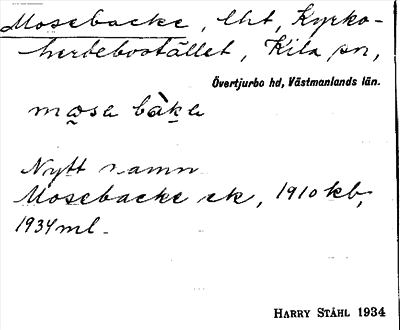 Mosebacke, lht, Kyrko-
herdebostället, Kila sn,
Övertjurbo hd, Västmanlands län.
mosa bàka
Nytt namn
Mosebacke ek, 1910 kb,
1934 ml.
HARRY STÅHL 1934